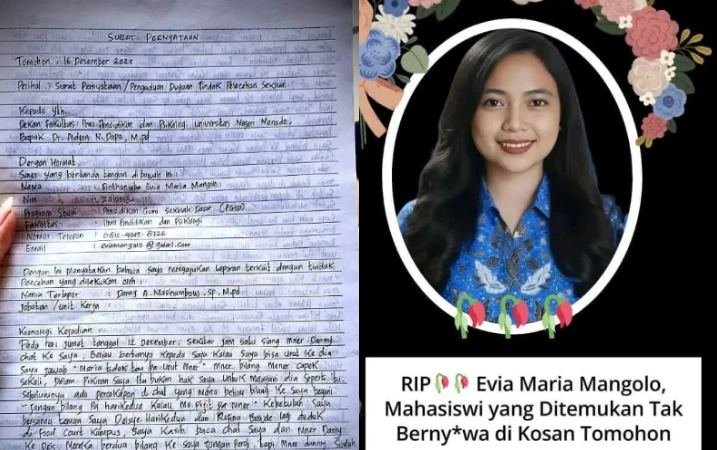 SURAT PERNYATAAN
Tomohon, 16 Desember 2025
Perihal : Surat Pernyataan / Pengaduan Dugaan Tindak Pelecehan Seksual
Kepada Yth,
Dekan Fakultas Ilmu Pendidikan dan Psikologi Universitas Negeri Manado,
Bapak Dr. N. M.pd
Dengan Hormat,
Saya yang bertanda tangan di bawah ini :
Nama : Evia Maria Mangolo
Nim :
Program Studi : Pendidikan Guru Sekolah Dasar (PGSD)
Fakultas : Ilmu Pendidikan dan Psikologi
Nomor Telepon :
Email : eviamangolo @ gmail.com
Dengan ini Menyatakan bahwa saya mengajukan laporan terkait dengan tindak
Pelecehan yang dilakukan oleh :
Nama Terlapor : Danny A. M.pd
Jabatan / Unit Kerja :
Kronologi Kejadian
Pada hari Jumat tanggal 12 Desember, Sekitar jam satu siang mner Danny
chat Ke Saya. Beliau bertanya Kepada Saya Kalau Saya bisa Urut Ke dia
Saya jawab "Maria tidak tau ba Urut Mner" Mner bilang Mener Capek
Sekali, Dalam Pikiran Saya Itu bukan hak Saya Untuk
ada percakapan di chat yang mana beliau bilang Ke Saya
"Jangan bilang Pa Kalau Mo pa mner" Kebetulan Saya
bersama teman Saya dan duduk
di Food Court Kampus, Saya Kasih baca chat Saya dan Mner Danny
Ke Mereka berdua bilang Ke Saya jangan Pergi, tapi Mner danny Sudah
RIP🥀🥀 Evia Maria Mangolo,
Mahasiswi yang Ditemukan Tak
Berny*wa di Kosan Tomohon